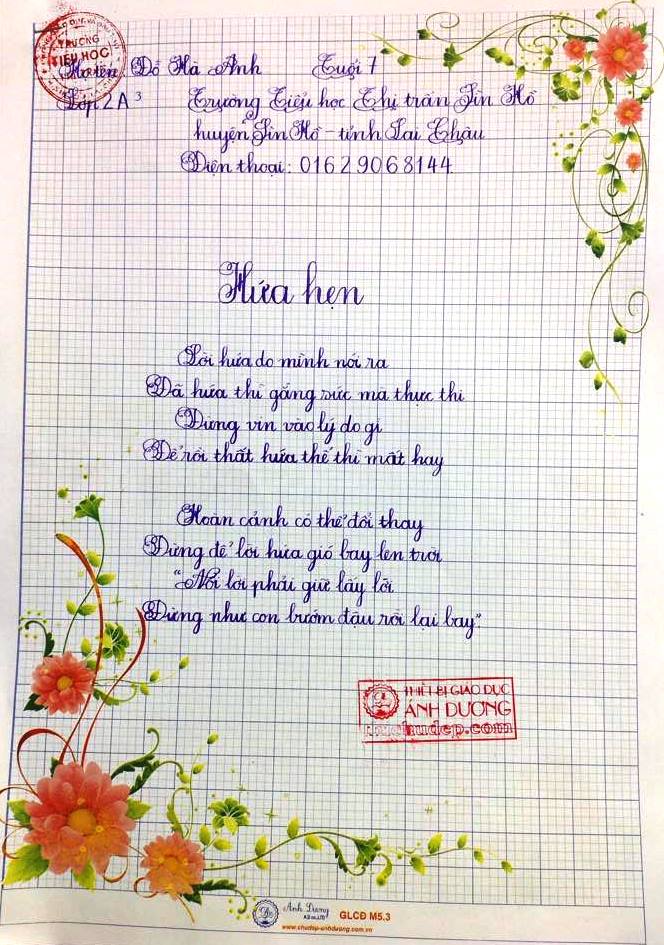 TRƯỜNG
TIỂU HỌC
Họ tên Đỗ Hà Anh Tuổi 7
Lớp 2A3 Trường Tiểu học Thị trấn Sìn Hồ
huyện Sìn Hồ - tỉnh Lai Châu
Điện thoại: 01629068144
Hứa hẹn
Lời hứa do mình nói ra
Đã hứa thì gắng sức mà thực thi
Đừng vin vào lý do gì
Để rồi thất hứa thế thì mất hay
Hoàn cảnh có thể đổi thay
Đừng để lời hứa gió bay lên trời
"Nói lời phải giữ lấy lời
Đừng như con bướm đậu rồi lại bay".
THIẾT BỊ GIÁO DỤC
ÁNH DƯƠNG
thuchudep.com
Anh Duong
GLCĐ M5.3
www.chudep-anhduong.com.vn